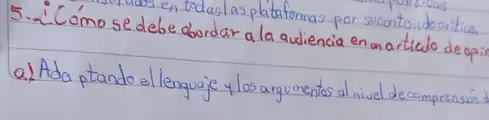 en todas las plataformas por su contenido critico
5.- ¿Cómo se debe abordar a la audiencia en un articulo de opin
a.) Adaptando el lenguaje y los argumentos al nivel de comprensión d